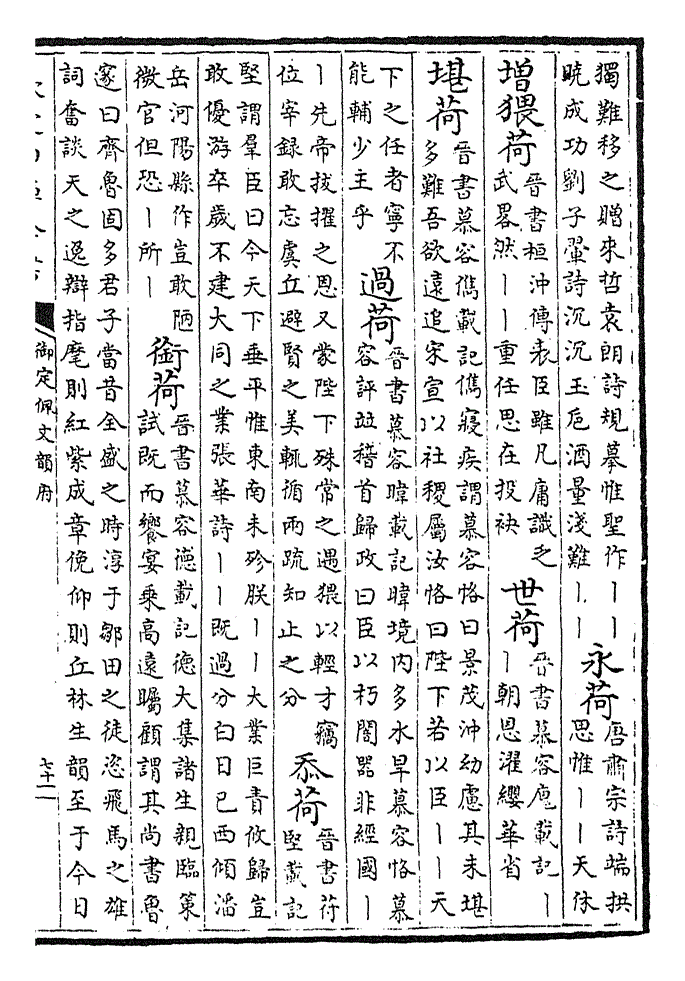 獨難移之贈來哲袁朗詩規摹惟聖作丨丨
曉成功劉子翬詩沉沉玉巵酒量淺難丨丨
永荷
唐肅宗詩端拱
思惟丨丨天休
增猥荷
晉書桓沖傳表臣雖凡庸識乏
武畧然丨丨重任思在投袂
世荷
晉書慕容廆載記丨
丨朝恩濯纓華省
堪荷
晉書慕容儁載記儁寢疾謂慕容恪曰景茂沖幼慮其未堪
多難吾欲遠追宋宣以社稷屬汝恪曰陛下若以臣丨丨天
下之任者寧不
能輔少主乎
過荷
晉書慕容暐載記暐境內多水旱慕容恪慕
容評竝稽首歸政曰臣以朽闇器非經國丨
丨先帝拔擢之恩又蒙陛下殊常之遇猥以輕才竊
位宰錄敢忘虞丘避賢之美輒循兩疏知止之分
忝荷
晉書苻
堅載記
堅謂羣臣曰今天下垂平惟東南未殄朕丨丨大業巨責攸歸豈
敢優游卒歲不建大同之業張華詩丨丨既過分白日已西傾潘
岳河陽縣作豈敢陋
微官但恐丨所丨
銜荷
晉書慕容德載記德大集諸生親臨策
試既而饗宴乘高遠矚顧謂其尚書魯
邃曰齊魯固多君子當昔全盛之時淳于鄒田之徒恣飛馬之雄
詞奮談天之逸辯指麾則紅紫成章俛仰則丘林生韻至于今日
御定佩文韻府
七十二